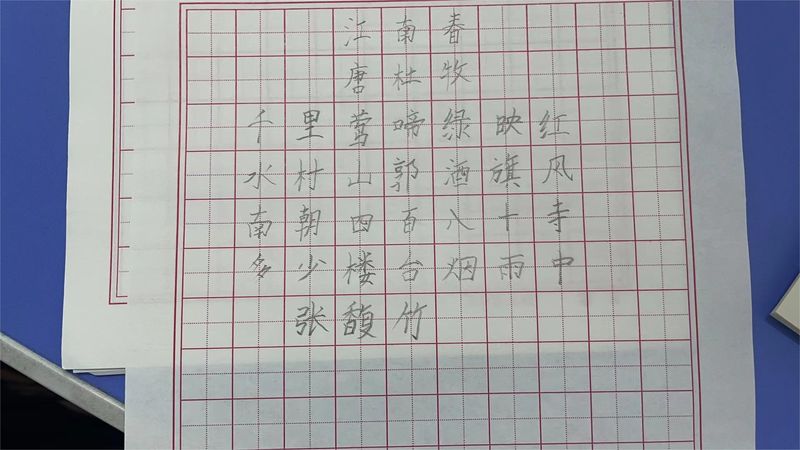 江南春
唐杜牧
千里莺啼绿映红
水村山郭酒旗风
南朝四百八十寺
多少楼台烟雨中
张馥竹